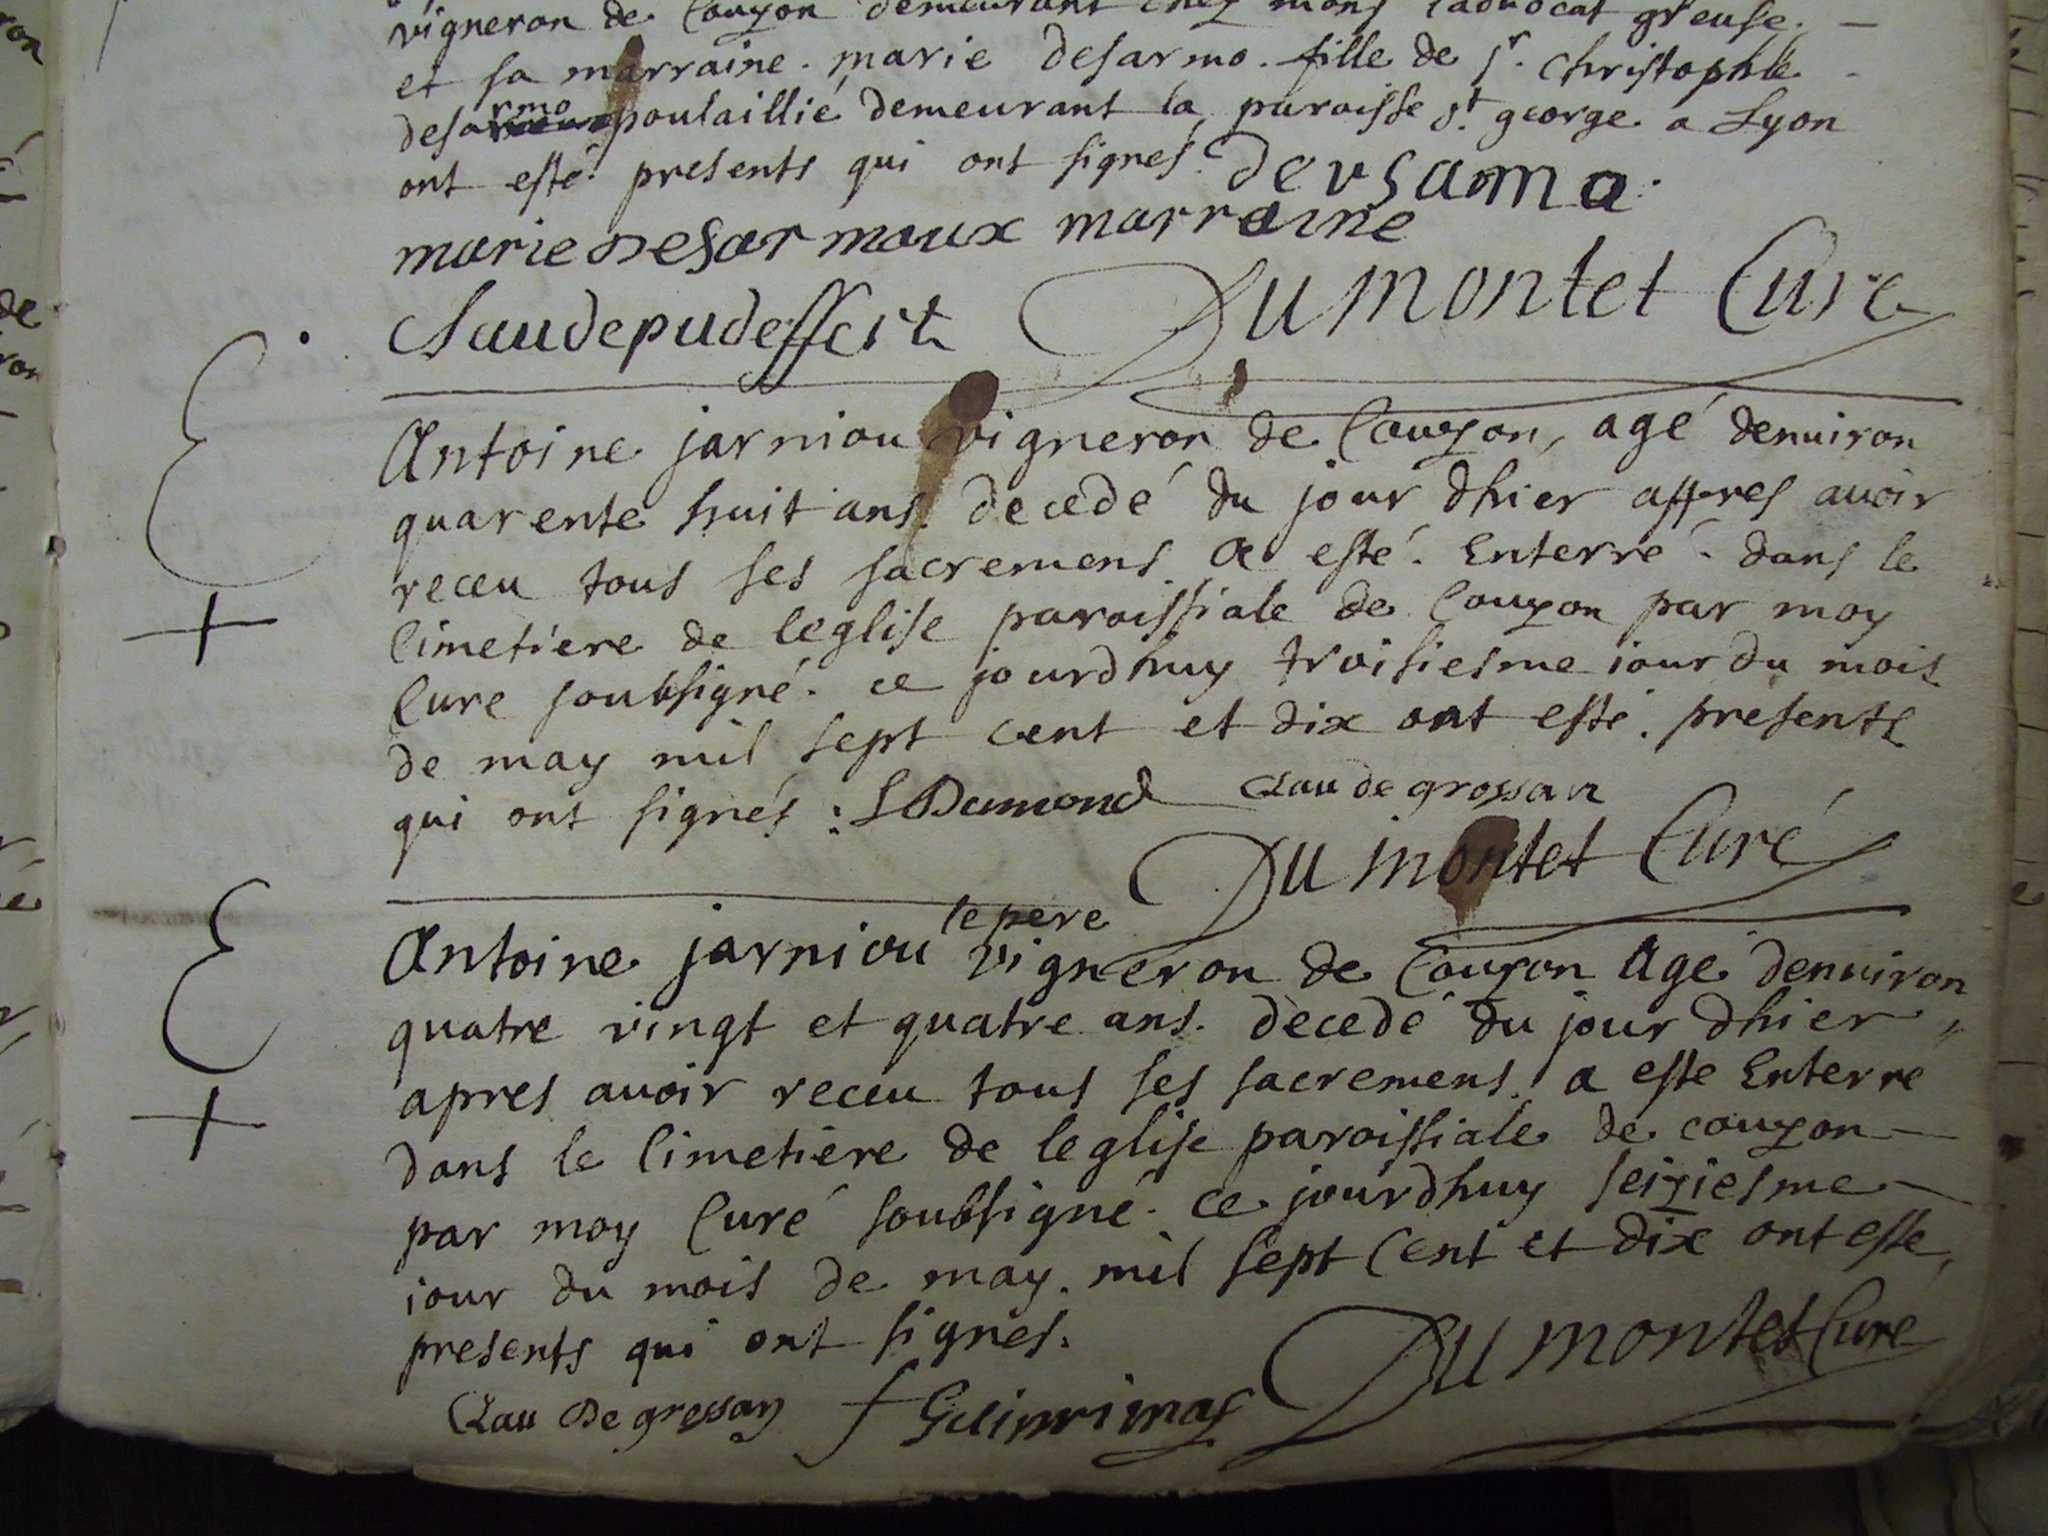 vigneron de Couzon demeurant chez mons ladvocat greuse.
et sa marraine. marie desarmo. fille de sr. Christophle
desarmo poulaillié demeurant la paroisse st. george a Lyon
ont esté presents qui ont signés. devsarmo.
marie desarmaux marraine
Claude pudeffert Dumontet Curé
Antoine jarniou vigneron de Couzon, agé denuiron
quarente huit ans. decedé du jour dhier appres auoir
receu tous ses sacremens a esté. Enterré. dans le
Cimetiere de leglise paroissiale de Couzon par moy
Curé soubsigné. ce jourdhuy troisiesme iour du mois
de may mil sept cent et dix ont esté. presents
qui ont signés: LDumond Claude grossan
Dumontet Curé
Antoine jarniou le pere vigneron de Couzon Agé denuiron
quatre vingt et quatre ans. decedé du jour dhier
apres auoir receu tous ses sacremens. a esté Enterré
dans le Cimetiere de leglise paroissiale de couzon
par moy Curé soubsigné. ce jourdhuy seiziesme
iour du mois de may. mil sept Cent et dix ont esté
presents qui ont signés.
Claude grossan Dumontet Curé